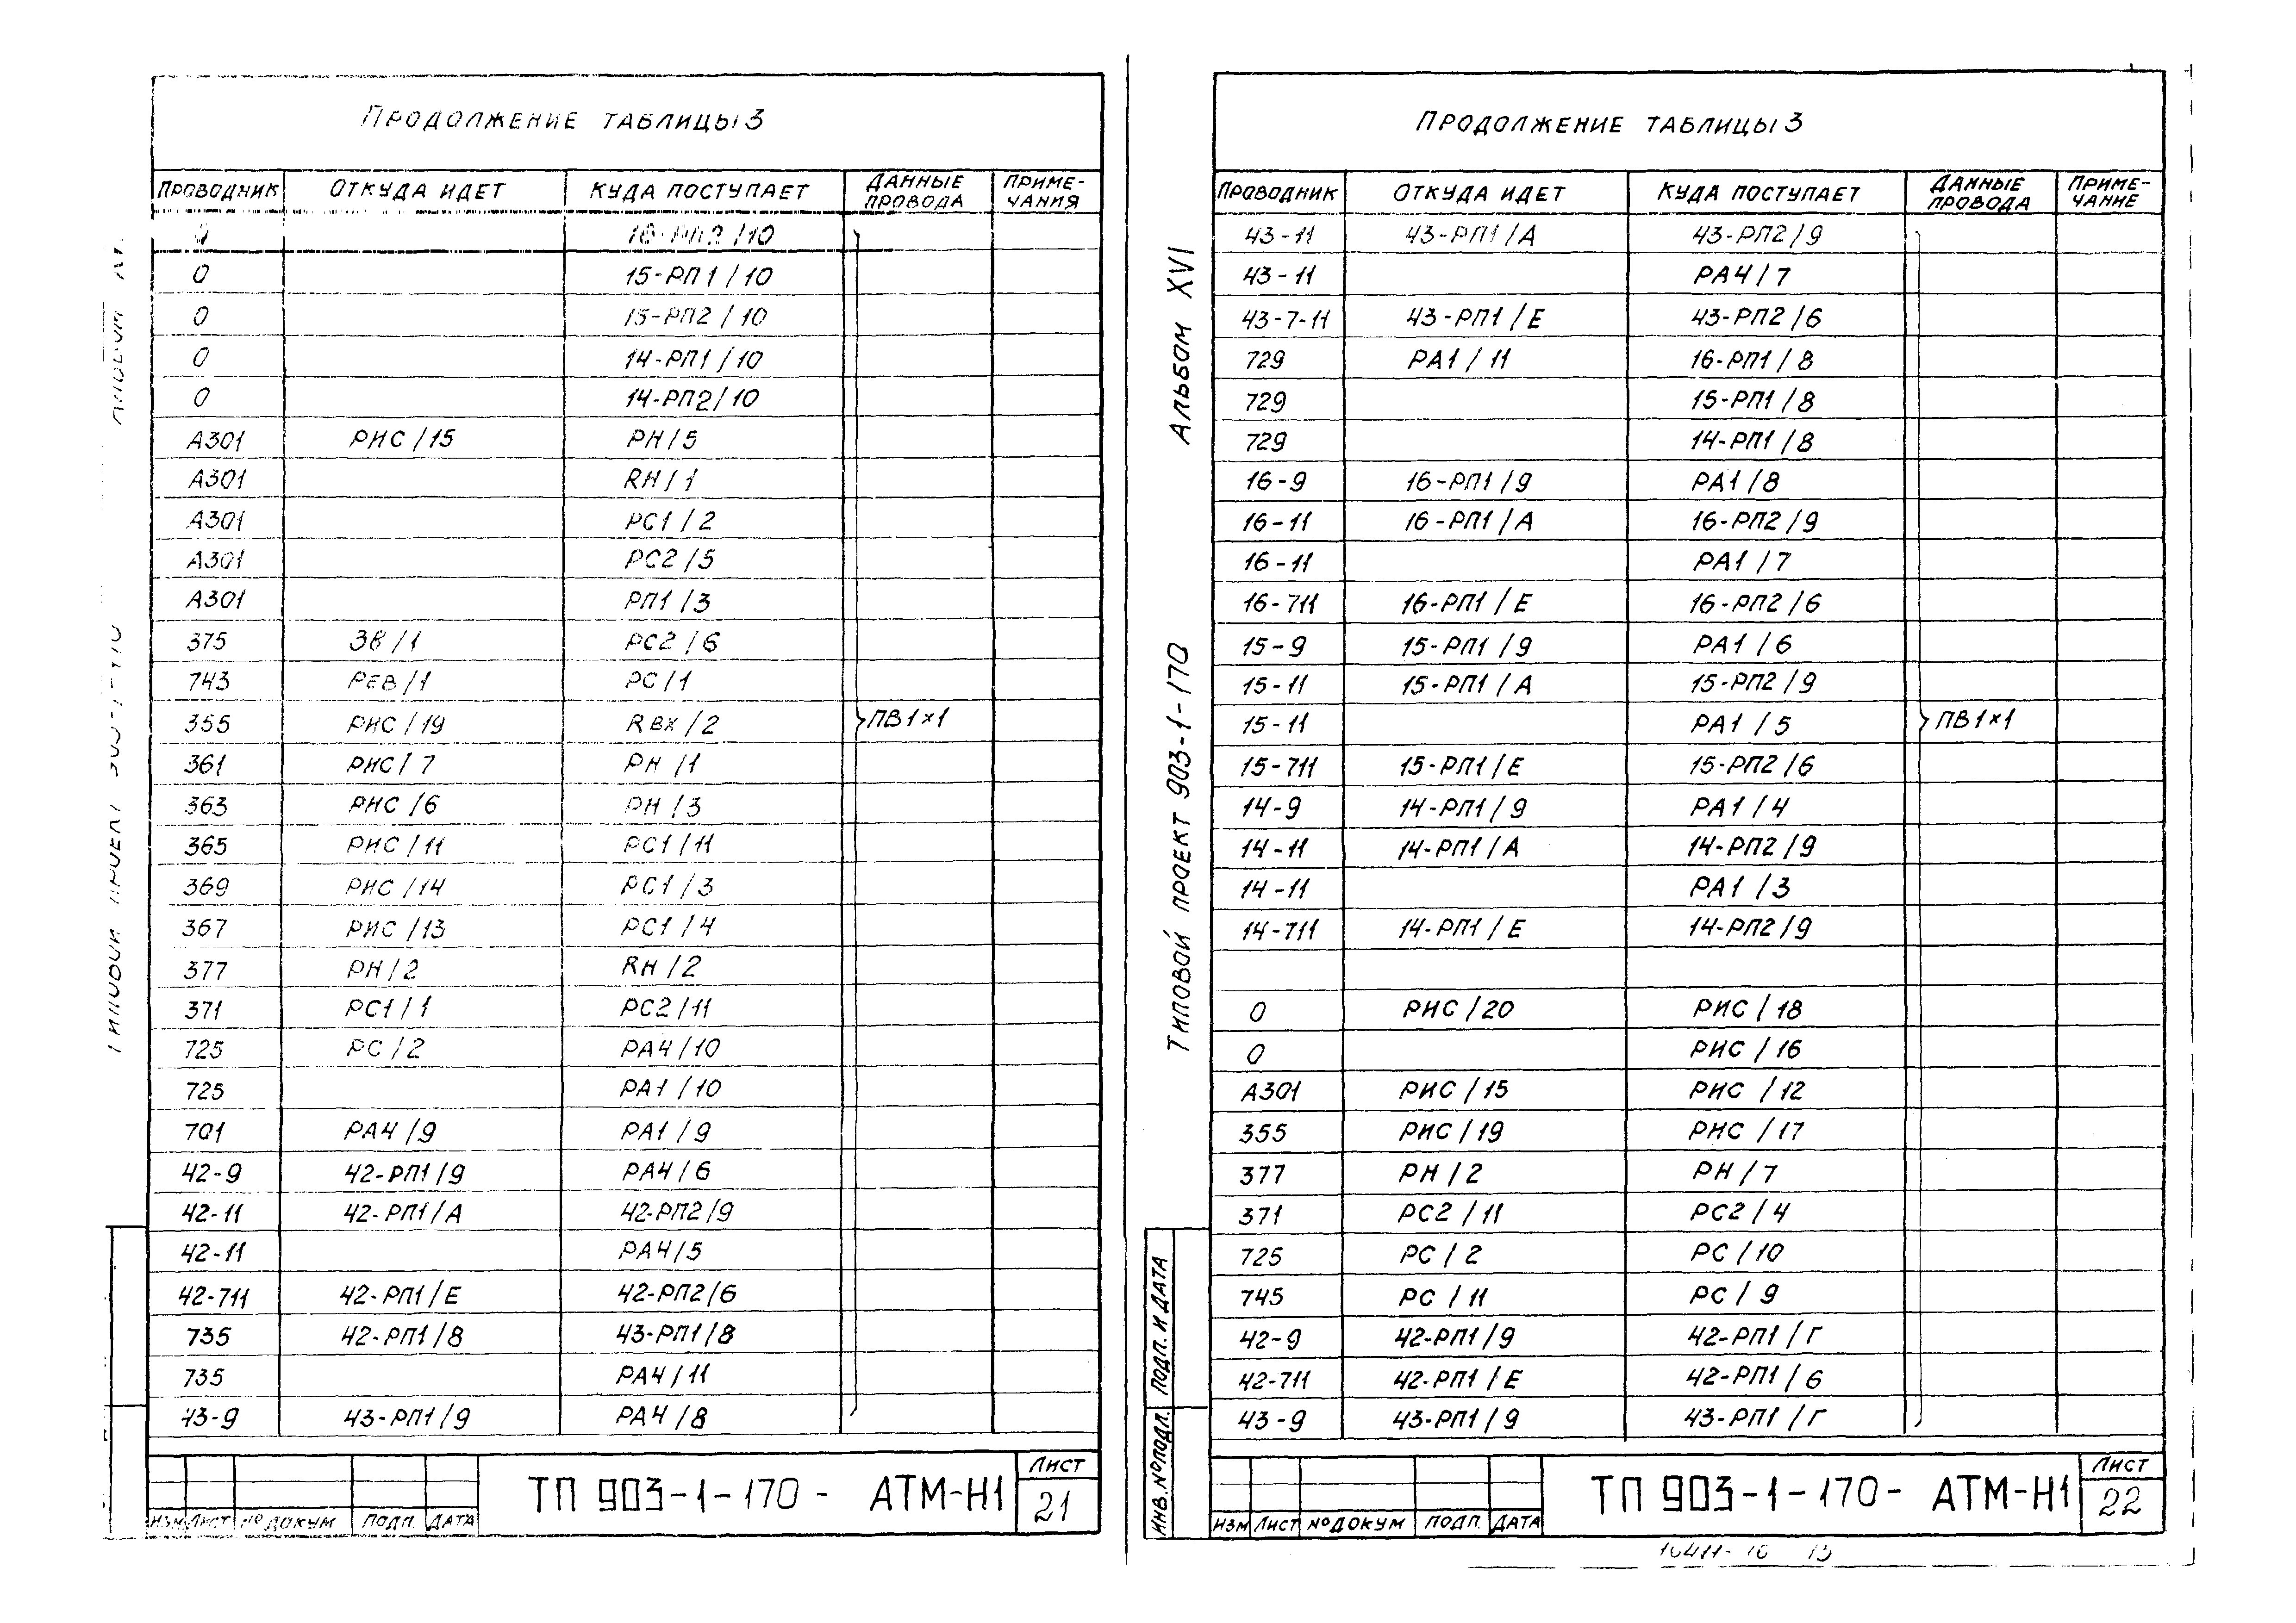 Продолжение таблицы 3
Проводник | Откуда идет | Куда поступает | Данные провода | Приме-чания
0 | | 16-РП2/10
0 | | 15-РП1/10
0 | | 15-РП2/10
0 | | 14-РП1/10
0 | | 14-РП2/10
А301 | РИС/15 | РН/5
А301 | | RН/1
А301 | | РС1/2
А301 | | РС2/5
А301 | | РП1/3
375 | ЗВ/1 | РС2/6
743 | РЕВ/1 | РС/1
355 | РИС/19 | RВХ/2 | ПВ1×1
361 | РИС/7 | РН/1
363 | РИС/6 | РН/3
365 | РИС/11 | РС1/11
369 | РИС/14 | РС1/3
367 | РИС/13 | РС1/4
377 | РН/2 | RН/2
371 | РС1/1 | РС2/11
725 | РС/2 | РА4/10
725 | | РА1/10
701 | РА4/9 | РА1/9
42-9 | 42-РП1/9 | РА4/6
42-11 | 42-РП1/А | 42-РП2/9
42-11 | | РА4/5
42-711 | 42-РП1/Е | 42-РП2/6
735 | 42-РП1/8 | 43-РП1/8
735 | | РА4/11
43-9 | 43-РП1/9 | РА4/8
Изм Лист № докум Подп. Дата
ТП 903-1-170- АТМ-Н1
Лист
21
Альбом XVI
Типовой проект 903-1-170
Продолжение таблицы 3
Проводник | Откуда идет | Куда поступает | Данные провода | Приме-чание
43-11 | 43-РП1/А | 43-РП2/9
43-11 | | РА4/7
43-7-11 | 43-РП1/Е | 43-РП2/6
729 | РА1/11 | 16-РП1/8
729 | | 15-РП1/8
729 | | 14-РП1/8
16-9 | 16-РП1/9 | РА1/8
16-11 | 16-РП1/А | 16-РП2/9
16-11 | | РА1/7
16-711 | 16-РП1/Е | 16-РП2/6
15-9 | 15-РП1/9 | РА1/6
15-11 | 15-РП1/А | 15-РП2/9
15-11 | | РА1/5 | ПВ1×1
15-711 | 15-РП1/Е | 15-РП2/6
14-9 | 14-РП1/9 | РА1/4
14-11 | 14-РП1/А | 14-РП2/9
14-11 | | РА1/3
14-711 | 14-РП1/Е | 14-РП2/9
0 | РИС/20 | РИС/18
0 | | РИС/16
А301 | РИС/15 | РИС/12
355 | РИС/19 | РИС/17
377 | РН/2 | РН/7
371 | РС2/11 | РС2/4
725 | РС/2 | РС/10
745 | РС/11 | РС/9
42-9 | 42-РП1/9 | 42-РП1/Г
42-711 | 42-РП1/Е | 42-РП1/6
43-9 | 43-РП1/9 | 43-РП1/Г
Инв. № подл. Подп. и дата
Изм Лист № докум Подп. Дата
ТП 903-1-170- АТМ-Н1
Лист
22